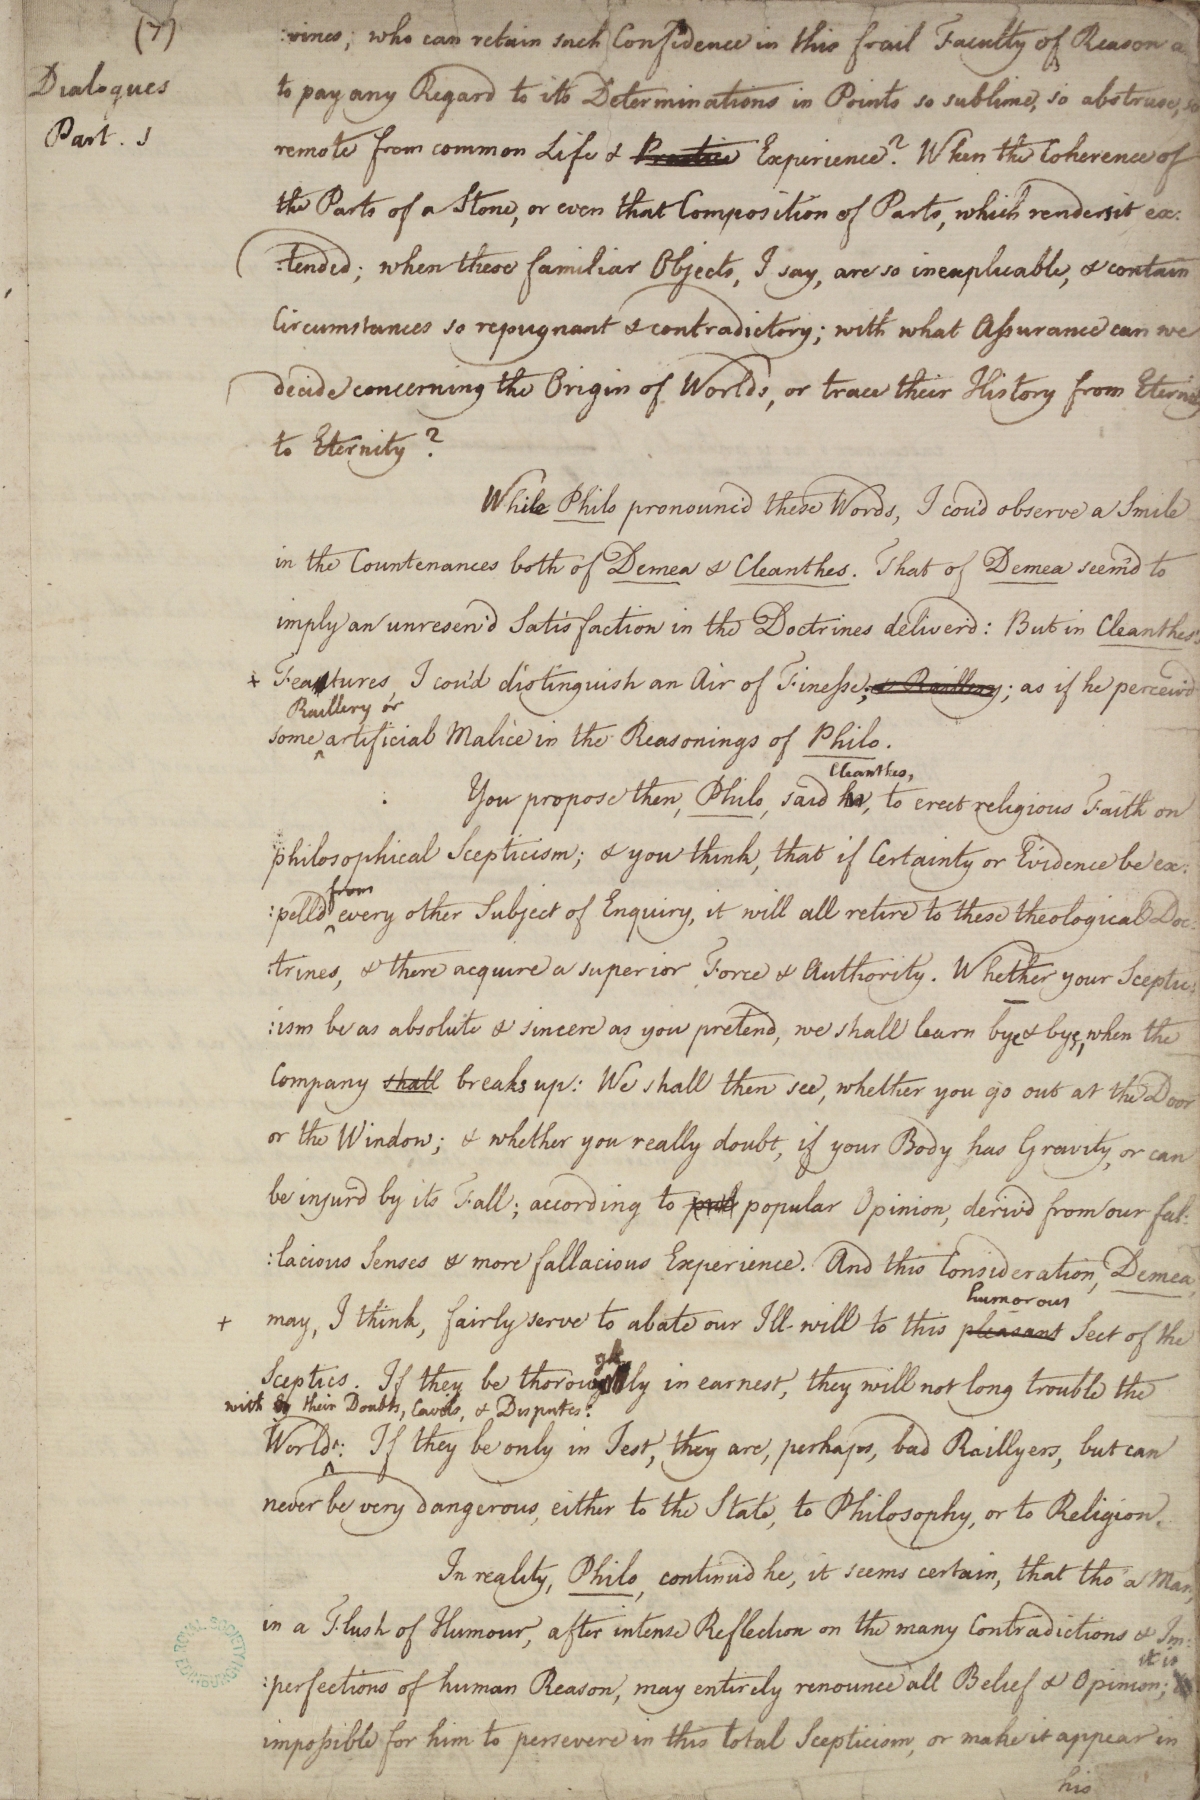 (7)
Dialogues
Part. 1
:vines; who can retain such Confidence in this frail Faculty of Reason a
to pay any Regard to its Determinations in Points so sublime, so abstruse, so
remote from common Life & Practice Experience? When the Coherence of
the Parts of a Stone, or even that Composition of Parts, which renders it ex:
:tended; when these familiar Objects, I say, are so inexplicable, & contain
Circumstances so repugnant & contradictory; with what Assurance can we
decide concerning the Origin of Worlds, or trace their History from Eternity
to Eternity?
While Philo pronounc'd these Words, I cou'd observe a Smile
in the Countenances both of Demea & Cleanthes. That of Demea seem'd to
imply an unreserv'd Satisfaction in the Doctrines deliverd: But in Cleanthes's
+ Features, I cou'd distinguish an Air of Finesse; & Raillery; as if he perceiv'd
Raillery or
some ^ artificial Malice in the Reasonings of Philo.
Cleanthes,
You propose then, Philo, said he, to erect religious Faith on
philosophical Scepticism; & you think, that if Certainty or Evidence be ex:
from
:pelld ^ every other Subject of Enquiry, it will all retire to these theological Doc:
:trines, & there acquire a superior Force & Authority. Whether your Sceptic:
:ism be as absolute & sincere as you pretend, we shall learn bye & bye, when the
Company shall breaks up: We shall then see, whether you go out at the Door
or the Window; & whether you really doubt, if your Body has Gravity, or can
be injurd by its Fall; according to popular Opinion, deriv'd from our fal:
:lacious Senses & more fallacious Experience. And this Consideration, Demea,
humorous
+ may, I think, fairly serve to abate our Ill-will to this pleasant Sect of the
gh
Sceptics. If they be thoroughly in earnest, they will not long trouble the
with their Doubts, Cavils, & Disputes:
World ^: If they be only in Jest, they are, perhaps, bad Raillyers, but can
never be very dangerous, either to the State, to Philosophy, or to Religion.
In reality, Philo, continu'd he, it seems certain, that tho' a Man,
in a Flush of Humour, after intense Reflection on the many Contradictions & Im:
it is
:perfections of human Reason, may entirely renounce all Belief & Opinion;
impossible for him to persevere in this total Scepticism, or make it appear in
his
ROYAL SOCIETY